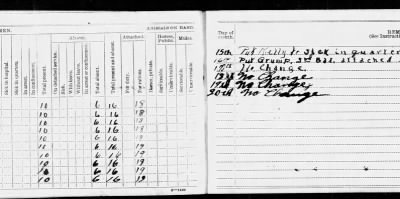 MEN.
ANIMALS ON HAND.
Absent.
Attached.
Horses, Public.
Mules.
Sick in hospital.
Sick in quarters.
In arrest.
In confinement.
Total present.
On detached service.
Sick.
With leave.
Without leave.
In arrest or confinement.
Total absent.
Total present and absent.
For duty.
For rations.
Horses, private.
Serviceable.
Unserviceable.
Serviceable.
Unserviceable.
10 6 16 18
10 6 16 18
10 6 16 18
10 6 16 18
10 6 16 18
10 6 16 19
10 6 16 19
10 6 16 19
10 6 16 19
10 6 16 19
Day of month.
REM
(See Instruct
15th Pvt Kelly fr Sick in quarter
16th Pvt Crump, 3rd Bad. attached
17th No Change
18th No Change
19th No Change
20th No Change